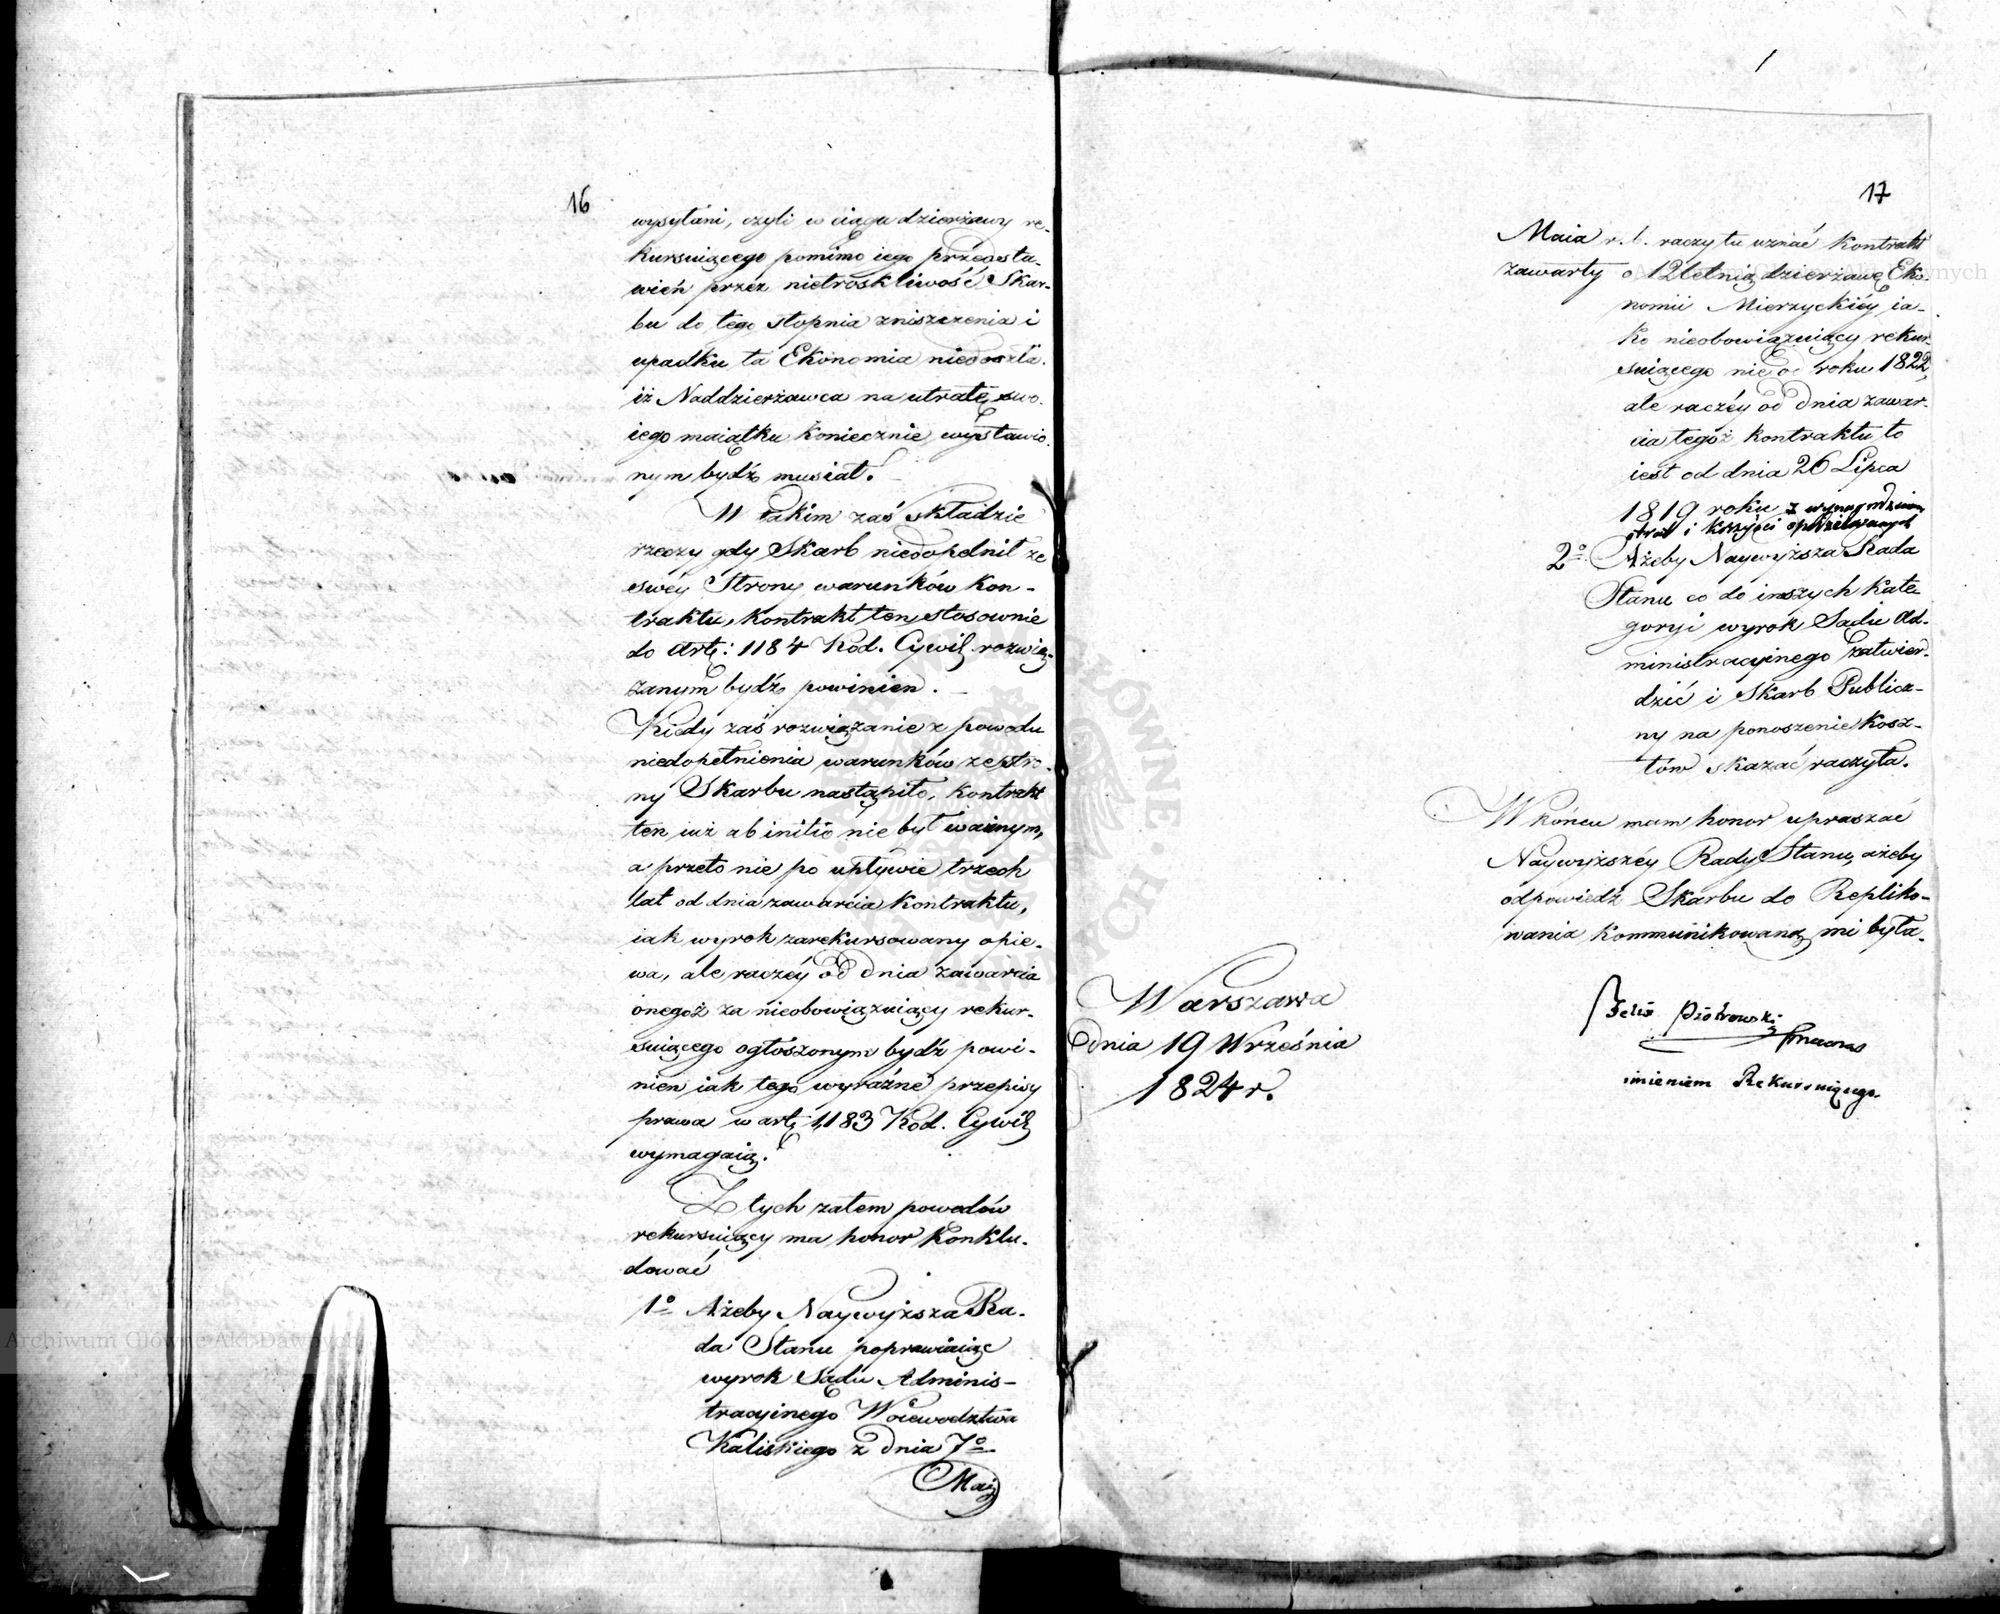 16
wysyłani, czyli w ciągu dzierżawy re-
kursuiącego pomimo iego przedsta-
wień przez nietroskliwość Skar-
bu do tego stopnia zniszczenia i
upadku ta Ekonomia niedoszła.
iż Naddzierżawca na utratę swo-
iego maiątku koniecznie wystawio-
nym bydź musiał.
W takim zaś składzie
rzeczy gdy Skarb niedopełnił ze
swéy Strony warunków Kon-
traktu, Kontrakt ten stosownie
do Art: 1184 Kod. Cywil. rozwią-
zanym bydź powinien. –
Kiedy zaś rozwiązanie z powodu
niedopełnienia warunków ze stro-
ny Skarbu nastąpiło, kontrakt
ten iuż ab initio nie był ważnym,
a przeto nie po upływie trzech
lat od dnia zawarcia Kontraktu,
iak wyrok zarekursowany opie-
wa, ale raczéy od dnia zawarcia
onegoż za nieobowiązuiący rekur-
suiącego ogłoszonym bydź powi-
nien iak tego wyraźne przepisy
prawa w art: 1183 Kod. Cywil.
wymagaią.
Z tych zatem powodów
rekursuiący ma honor Konklu-
dować
1º Ażeby Naywyższa Ra-
da Stanu poprawiaiąc
wyrok Sądu Adminis-
tracyinego Woiewodztwa
Kaliskiego z dnia 7º
Maia
17
Maia r. b. raczyła uznać Kontrakt
zawarty o 12letnią dzierżawę Eko-
nomii Mierzyckiéy ia-
ko nieobowiązuiący rekur-
suiącego nie od roku 1822,
ale raczéy od dnia zawar-
cia tegoż kontraktu to
iest od dnia 26 Lipca
1819 roku z wynagrodzeniem
strat i korzyści
2º Ażeby Naywyższa Rada
Stanu co do inszych Kate-
goryi wyrok Sądu Ad-
ministracyinego zatwier-
dzić i Skarb Publicz-
ny na ponoszenie Kosz-
tów skazać raczyła.
W końcu mam honor upraszać
Naywyższéy Rady Stanu, ażeby
odpowiedź Skarbu do Repliko-
wania kommunikowaną mi była.
Warszawa
dnia 19 Września
1824 r.
Felix Piotrowski
imieniem Rekursuiącego.
Archiwum Główne Akt Dawnych